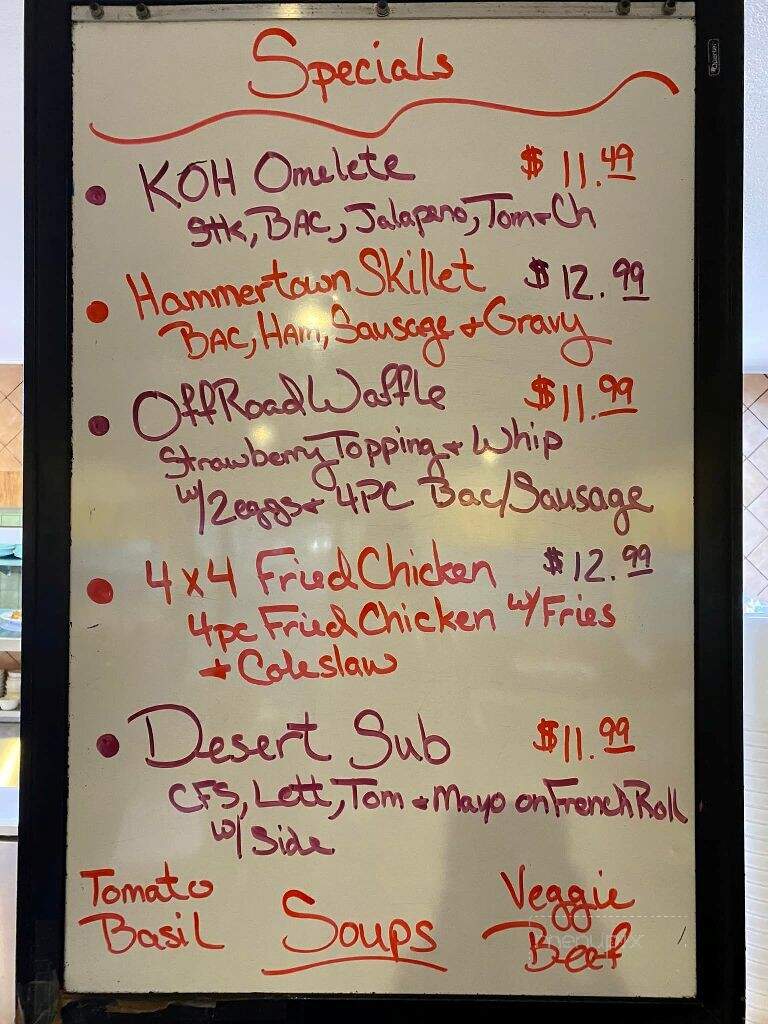 Specials
• KOH Omelete $11.49
Stk, BAC, Jalapeno, Tom + Ch
• Hammertown Skillet $12.99
BAC, Ham, Sausage + Gravy
• OffRoad Waffle $11.99
Strawberry Topping + Whip
w/2eggs + 4PC Bac/Sausage
• 4x4 Fried Chicken $12.99
4pc Fried Chicken w/Fries
+ Coleslaw
• Desert Sub $11.99
CFS, Lett, Tom + Mayo on French Roll
w/ Side
Tomato
Basil
Soups
Veggie
Beef
menupix